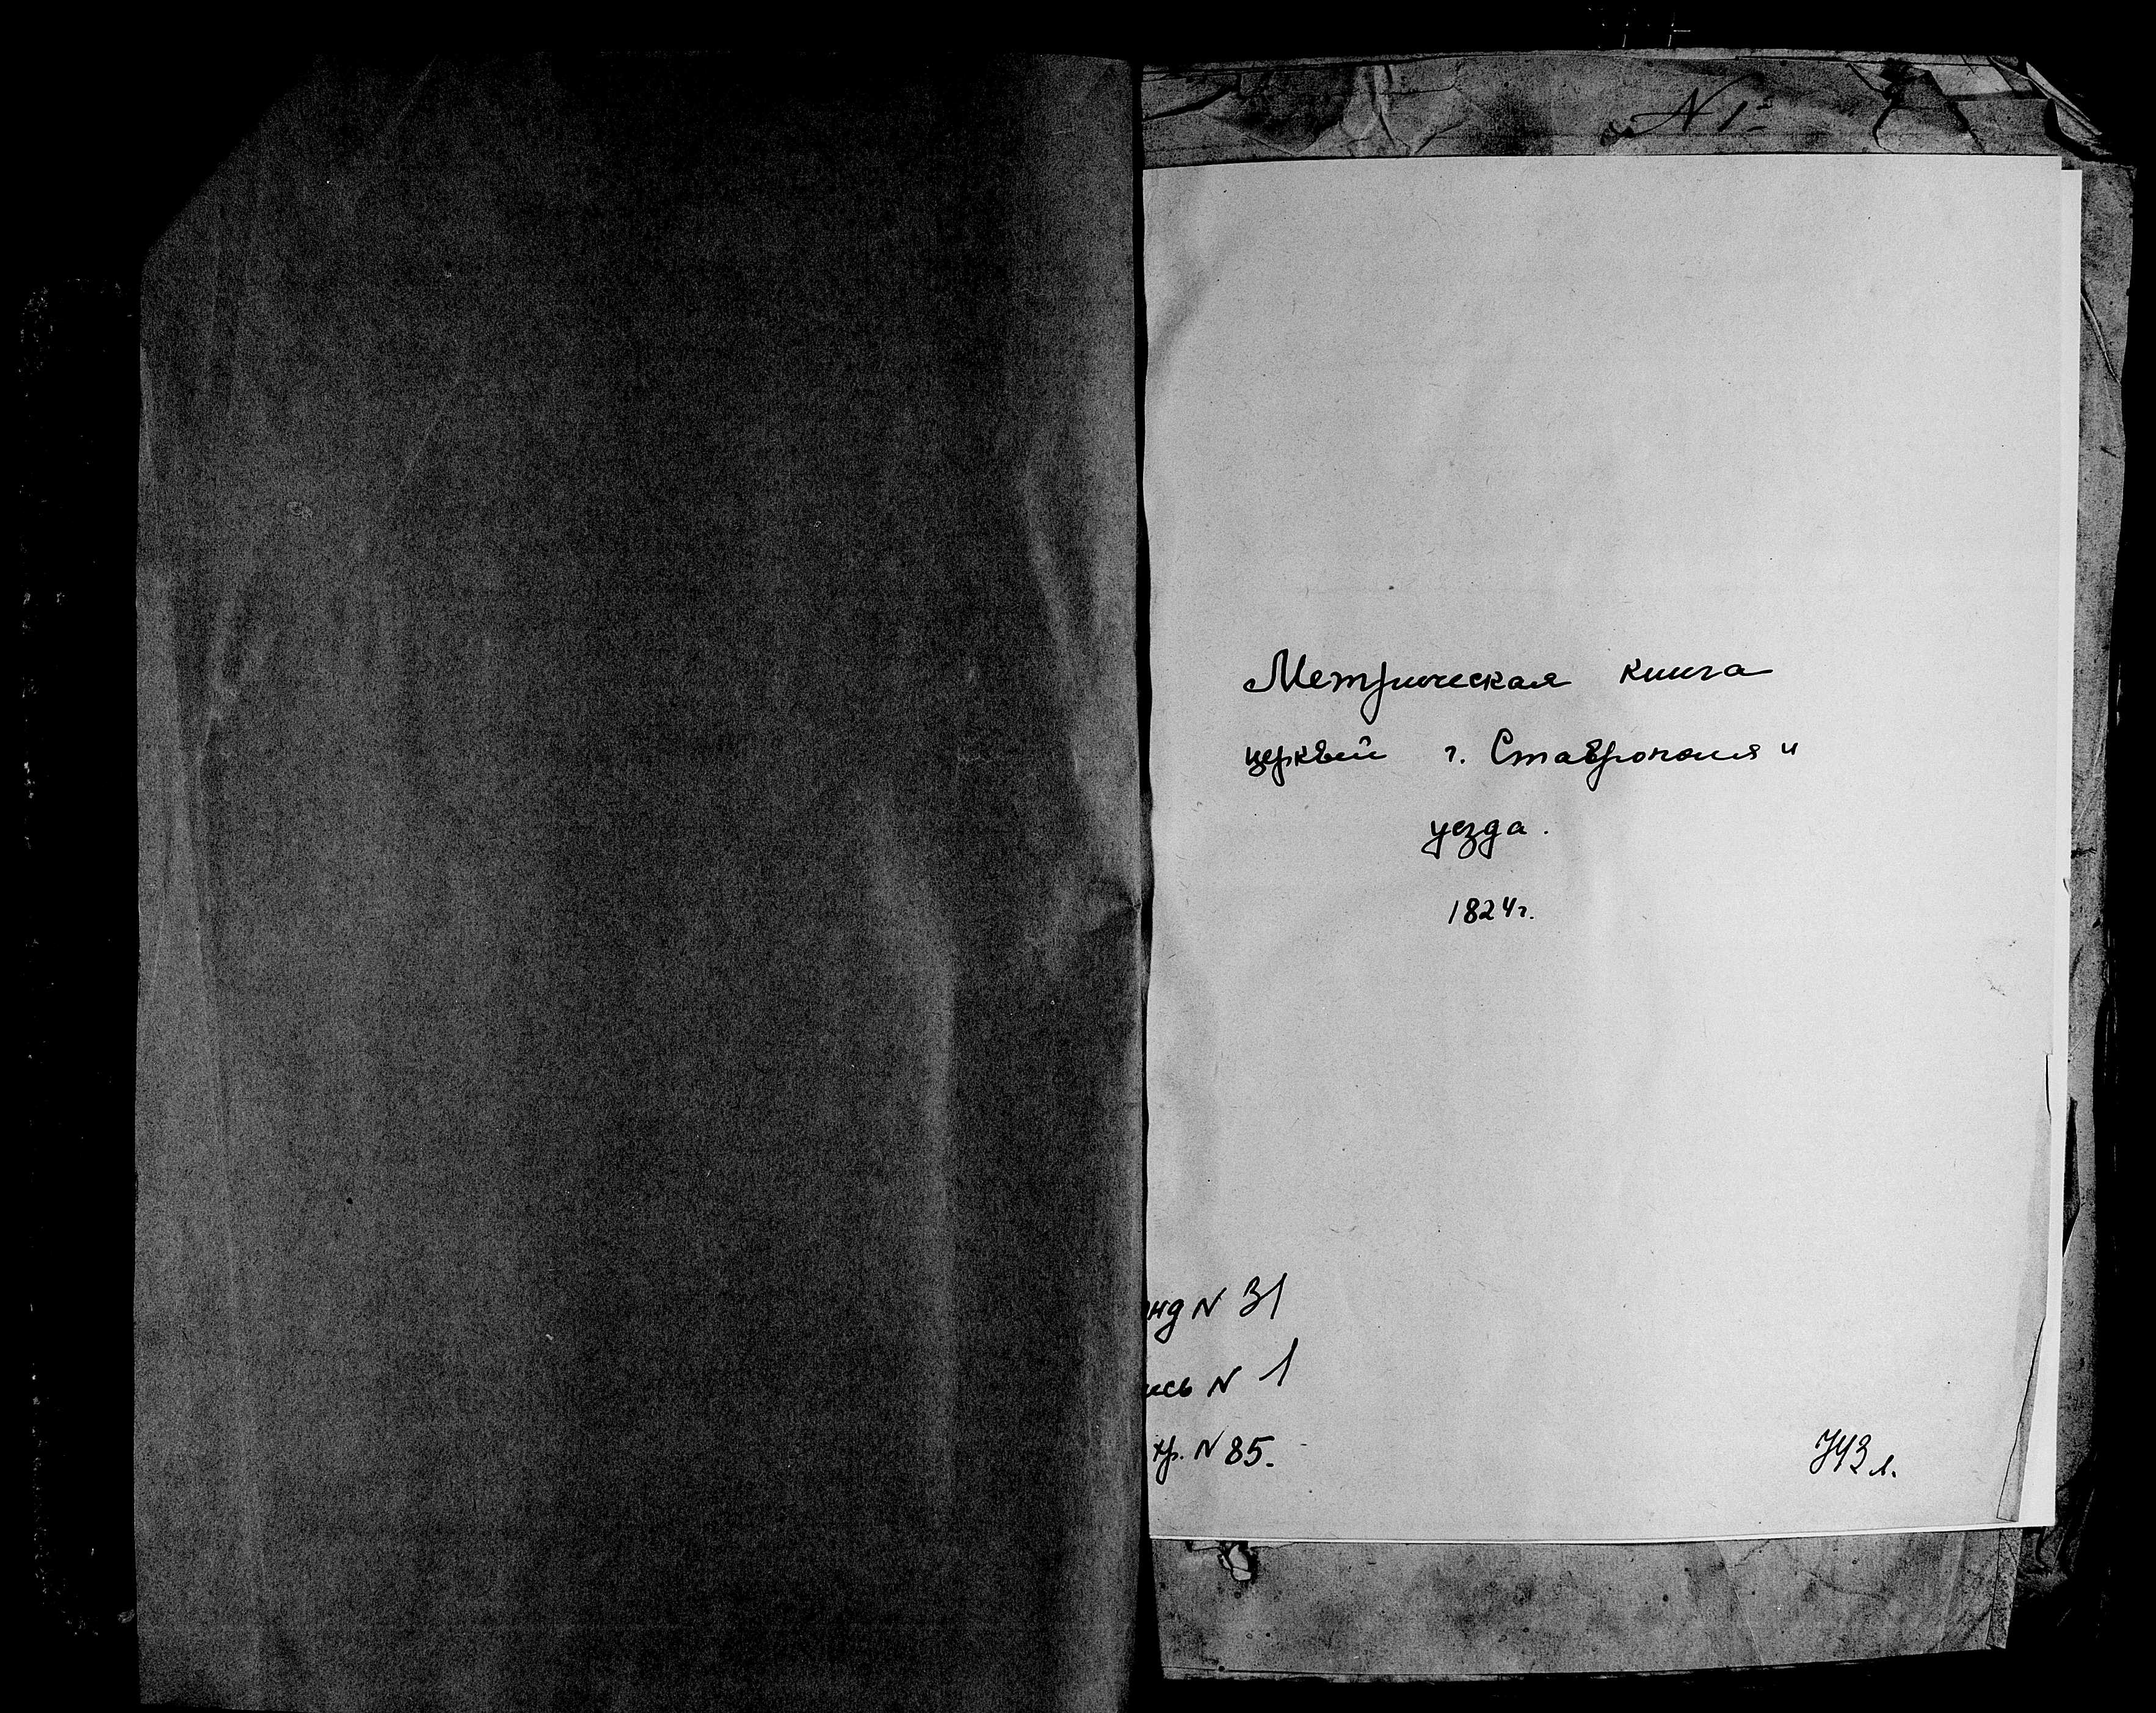 N 1
Метрическая книга
церквей г. Ставрополя и
уезда.
1824г.
онд N 31
ись N 1
хр. N 85.
743 л.